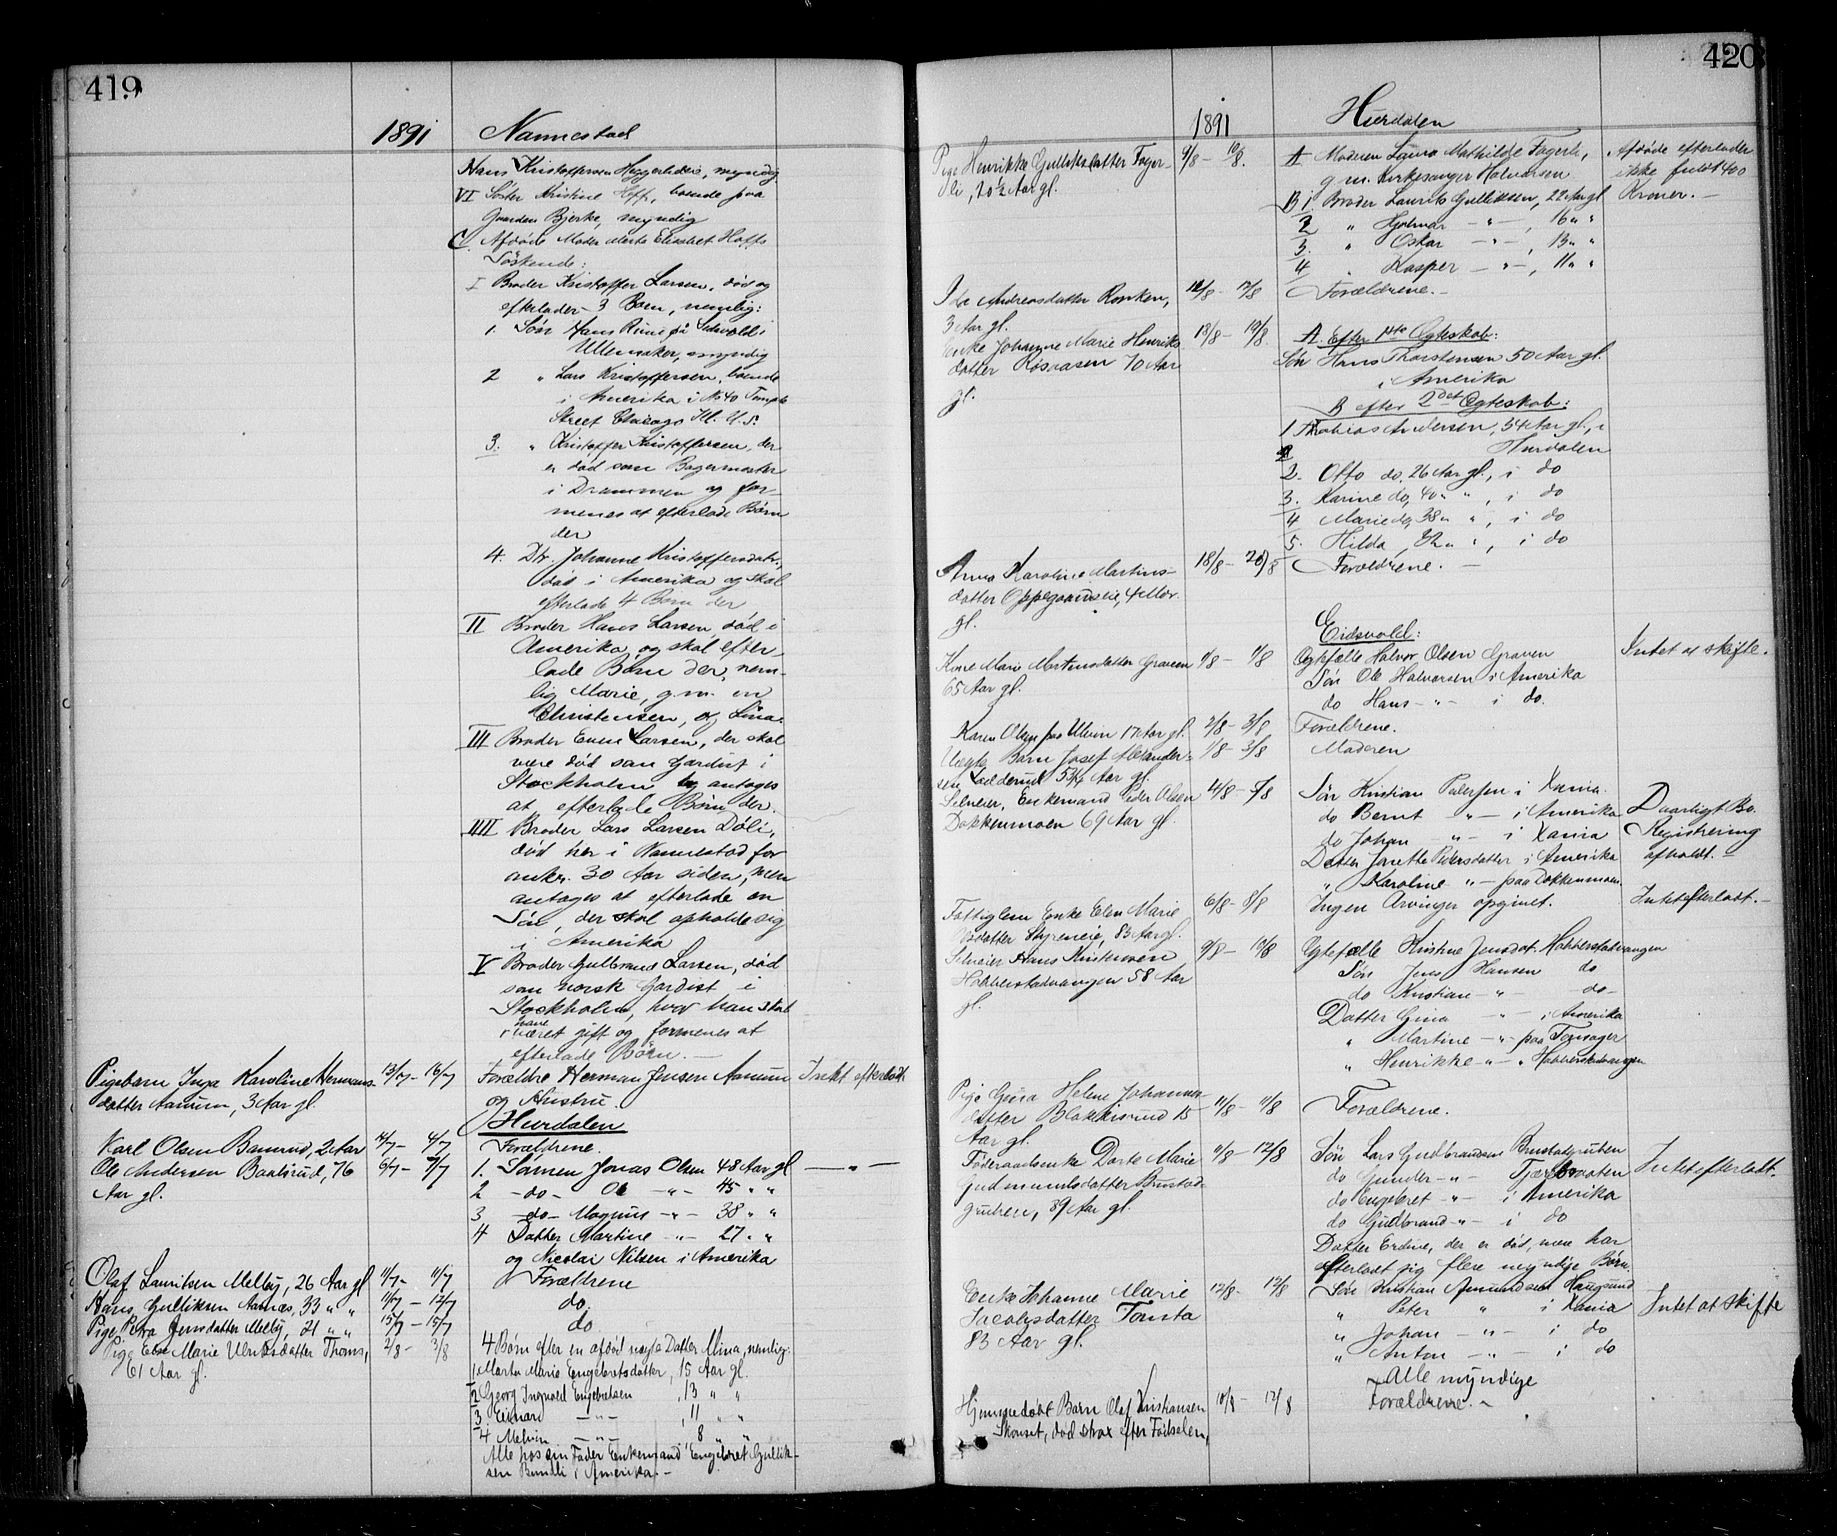 419
1891 Nannestad
Hans Kristoffersen Heggerlideie, myndig
VI Søster Kristine Hoff, boende paa
Gaarden Bjerke, myndig
C. Afdøde Moder Elisabet Hoffs
Søskende:
I Broder Kristoffer Larsen, død og
efterlader 3 Børn, nemlig:
1. Søn Hans i
Ullensaker, myndig
2 " Lars Kristoffersen, boende
i Amerika i No 40 Temple
Street Chicago Ill. U.S.
3. " Kristoffer Kristoffersen, der
er død som Bagermester
i Drammen og for-
menes at efterlade Børn
der
4. Dtr. Johanne Kristoffersdatr.,
død i Amerika og skal
efterlade 4 Børn der
II Broder Hans Larsen, død i
Amerika og skal efter-
lade Børn der, nem-
lig Marie, g.m. en
Christensen, og Lina.
III Broder Even Larsen, der skal
være død som Gardist i
Stockholm og antages
at efterlade Børn der.
IIII Broder Lars Larsen Døli,
død her i Nannestad for
omkr. 30 Aar siden, men
antages at efterlade en
Søn, der skal opholde sig
i Amerika
V Broder Gulbrand Larsen, død
som norsk Gardist i
Stockholm, hvor han skal
have
været gift og formenes at
efterlade Børn. —
Pigebarn Inga Karoline Hermans- 13/7 – 16/7 Forældre Herman Jensen Aamum Intet efterladt
datter Aamum, 3 Aar gl. og Hustru.
Hurdalen
Karl Olsen Bamrud, 2 Aar 4/7 – 4/7 Forældrene.
Ole Andersen Baalsrud, 76 6/7 – 7/7 1. Sønnen Jonas Olsen 48 Aar gl — " —
Aar gl. 2 – do – Ole – " – 45 " "
3 – do – Magnus – " – 38 " "
4 Datter Martine – " – 27 " "
og Nicolai Nilsen i Amerika
Olaf Lauritsen Melby, 26 Aar gl 11/7 – 11/7 Forældrene
Hans Gulliksen Aasnæs, 33 " " 11/7 – 12/7 do.
Pige Petra Jensdatter Melby, 21 " " 15/7 – 15/7 do
Pige Else Marie Ulriksdatter Thoms, 2/8 – 3/8 4 Børn efter en afdød uægte Datter Mina, nemlig:
61 Aar gl. 1 Marta Marie Engebretsdatter, 15 Aar gl.
2 Georg Ingvald Engebretsen , 13 " "
3 Einard – " – , 11 " "
4 Melvin – " – 8 " "
Alle hos sin Fader Enkemand Engebret Gullik-
sen i Amerika. –
420
1891 Hurdalen
Pige Henrikke Gulliksdatter Fager- 9/8 – 10/8. A Moderen Laura Mathilde Fagerli, Afdøde efterlader
li, 20½ Aar gl. g.m. Kirkesanger Halvorsen ikke fuldt 400
B 1. Broder Laurits Gulliksen, 22 Aar gl Kroner. –
2 " Hjalmar – " – , 16 " "
3. " Oskar – " – , 13 " "
4 " Kasper – " – , 11 " "
Ida Andreasdatter Rønken, 12/8 – 12/8 Forældrene. –
3 Aar gl.
Enke Johanne Marie Henriks- 18/8 – 19/8. A. Efter 1ste Egteskab:
datter Røsaasen 70 Aar Søn Hans Thorstensen 50 Aar gl.
gl. i Amerika
B efter 2det Egteskab:
1 Thobias Andersen, 54 Aar gl., i
Hurdalen
2. Otto do, 26 Aar gl., i do
3. Karine do, 40 " " , i do
4 Marie do, 38 " " , i do
5. Hilda , " " , i do
Anna Karoline Martins- 18/8 – 20/8 Forældrene. –
datter Oppegaardseie, 4 Mdr.
gl.
Eidsvold:
Kone Marie Mortensdatter Graven /8 – /8 Egtefælle Halvor Olsen Graven Intet at skifte.
65 Aar gl. Søn Ole Halvorsen i Amerika
do Hans – " – i do.
Karen Olsen paa Ulvin 17 Aar gl. 2/8 – 3/8 Forældrene.
Uægte Barn Josef Alexander- 1/8 – 3/8 Moderen
sen Ladderud 5 3/4 Aar gl.
Selveier, Enkemand Peder Olsen 4/8 – 5/8 Søn Kristian Pedersen i Xania.
Dokkenmoen 69 Aar gl. do Bernt " – i Amerika Daarligt Bo.
do Johan " – i Xania Registrering
Datter Jonette Pedersdatter i Amerika afholdt. –
" Karoline " – paa Dokkenmoen.
Fattiglem Enke Elen Marie 6/8 – 8/8 Ingen Arvinger opgivet. Intet efterladt. –
Olsdatter Styreneie, 83 Aar gl.
Selveier Hans Kristensen 9/8 – 10/8 Egtefælle Kristine Jensdat. Habberstadvangen
Habberstadvangen 58 Aar Søn Jens Hansen do
gl. do Kristian – " – do –
Datter Gina – " – i Amerika
" Martine – " – paa Fonsager
" Henrikke – " – " Habberstadvangen
Pige Gusta Helene Johannes- 11/8 – 11/8 Forældrene.
datter Blakkisrud 15
Aar gl.
Føderaadsenke Dorte Marie 11/8 – 12/8 Søn Lars Gudbrandsen Brustadgruben Intet efterladt.
Gudmundsdatter Brustad- do Gunder – " – Tjærebraaten
gruben, 89 Aar gl. do Engebret – " – i Amerika
do Gudbrand – " – i do
Datter Erdine, der er død, men har
efterladt sig flere myndige Børn.
Enke Johanne Marie 12/8 – 12/8 Søn Kristian Amundsen Haugsund
Jacobsdatter Tomta " Peter " i Xania Intet at skifte
83 Aar gl. " Johan – " – i do
" Anton – " – i do
Alle myndige
Hjemmedøbt Barn Olaf Kristiansen 10/8 – 12/8 Forældrene. –
Skouset, død strax efter Fødselen,